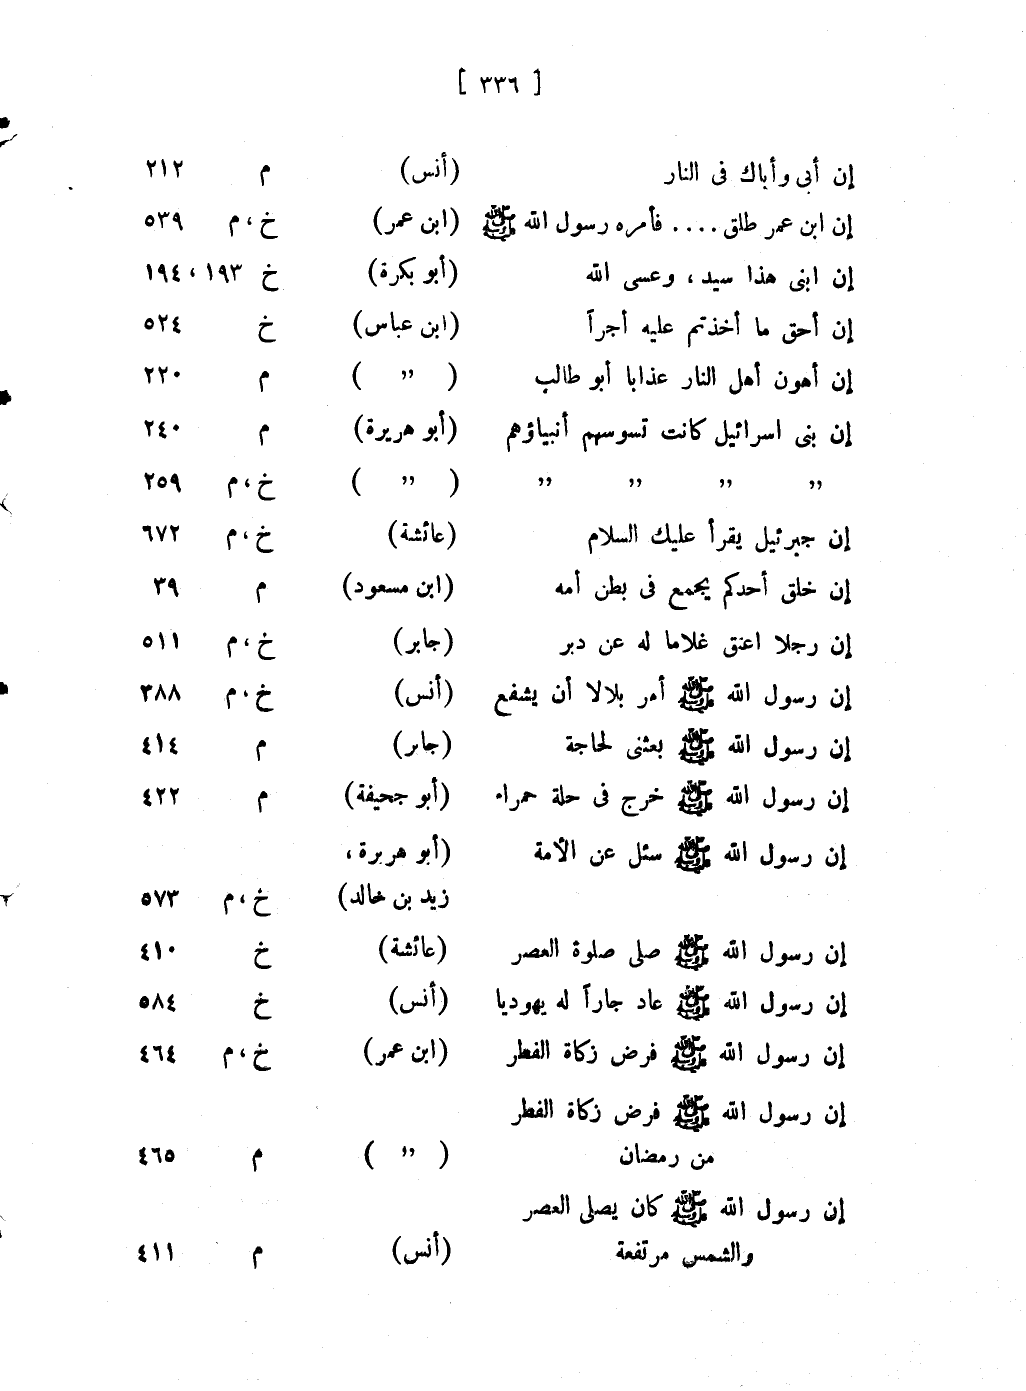 [ ٣٣٦ ]
إن أبى وأباك فى النار (أنس) م ٢١٢
إن ابن عمر طلق .... فأمره رسول الله ﷺ (ابن عمر) خ، م ٥٣٩
إن ابنى هذا سيد، وعسى الله (أبو بكرة) خ ١٩٣، ١٩٤
إن أحق ما أخذتم عليه أجراً (ابن عباس) خ ٥٢٤
إن أهون أهل النار عذابا أبو طالب ( ,, ) م ٢٢٠
إن بنى اسرائيل كانت تسوسهم أنبياؤهم (أبو هريرة) م ٢٤٠
,, ,, ,, ,, ( ,, ) خ، م ٢٥٩
إن جبرئيل يقرأ عليك السلام (عائشة) خ، م ٦٧٢
إن خلق أحدكم يجمع فى بطن أمه (ابن مسعود) م ٣٩
إن رجلا اعتق غلاما له عن دبر (جابر) خ، م ٥١١
إن رسول الله ﷺ أمر بلالا أن يشفع (أنس) خ، م ٣٨٨
إن رسول الله ﷺ بعثنى لحاجة (جابر) م ٤١٤
إن رسول الله ﷺ خرج فى حلة حمراء (أبو جحيفة) م ٤٢٢
إن رسول الله ﷺ سئل عن الأمة (أبو هريرة،
زيد بن خالد) خ، م ٥٧٣
إن رسول الله ﷺ صلى صلوة العصر (عائشة) خ ٤١٠
إن رسول الله ﷺ عاد جاراً له يهوديا (أنس) خ ٥٨٤
إن رسول الله ﷺ فرض زكاة الفطر (ابن عمر) خ، م ٤٦٤
إن رسول الله ﷺ فرض زكاة الفطر
من رمضان ( ,, ) م ٤٦٥
إن رسول الله ﷺ كان يصلى العصر
والشمس مرتفعة (أنس) م ٤١١